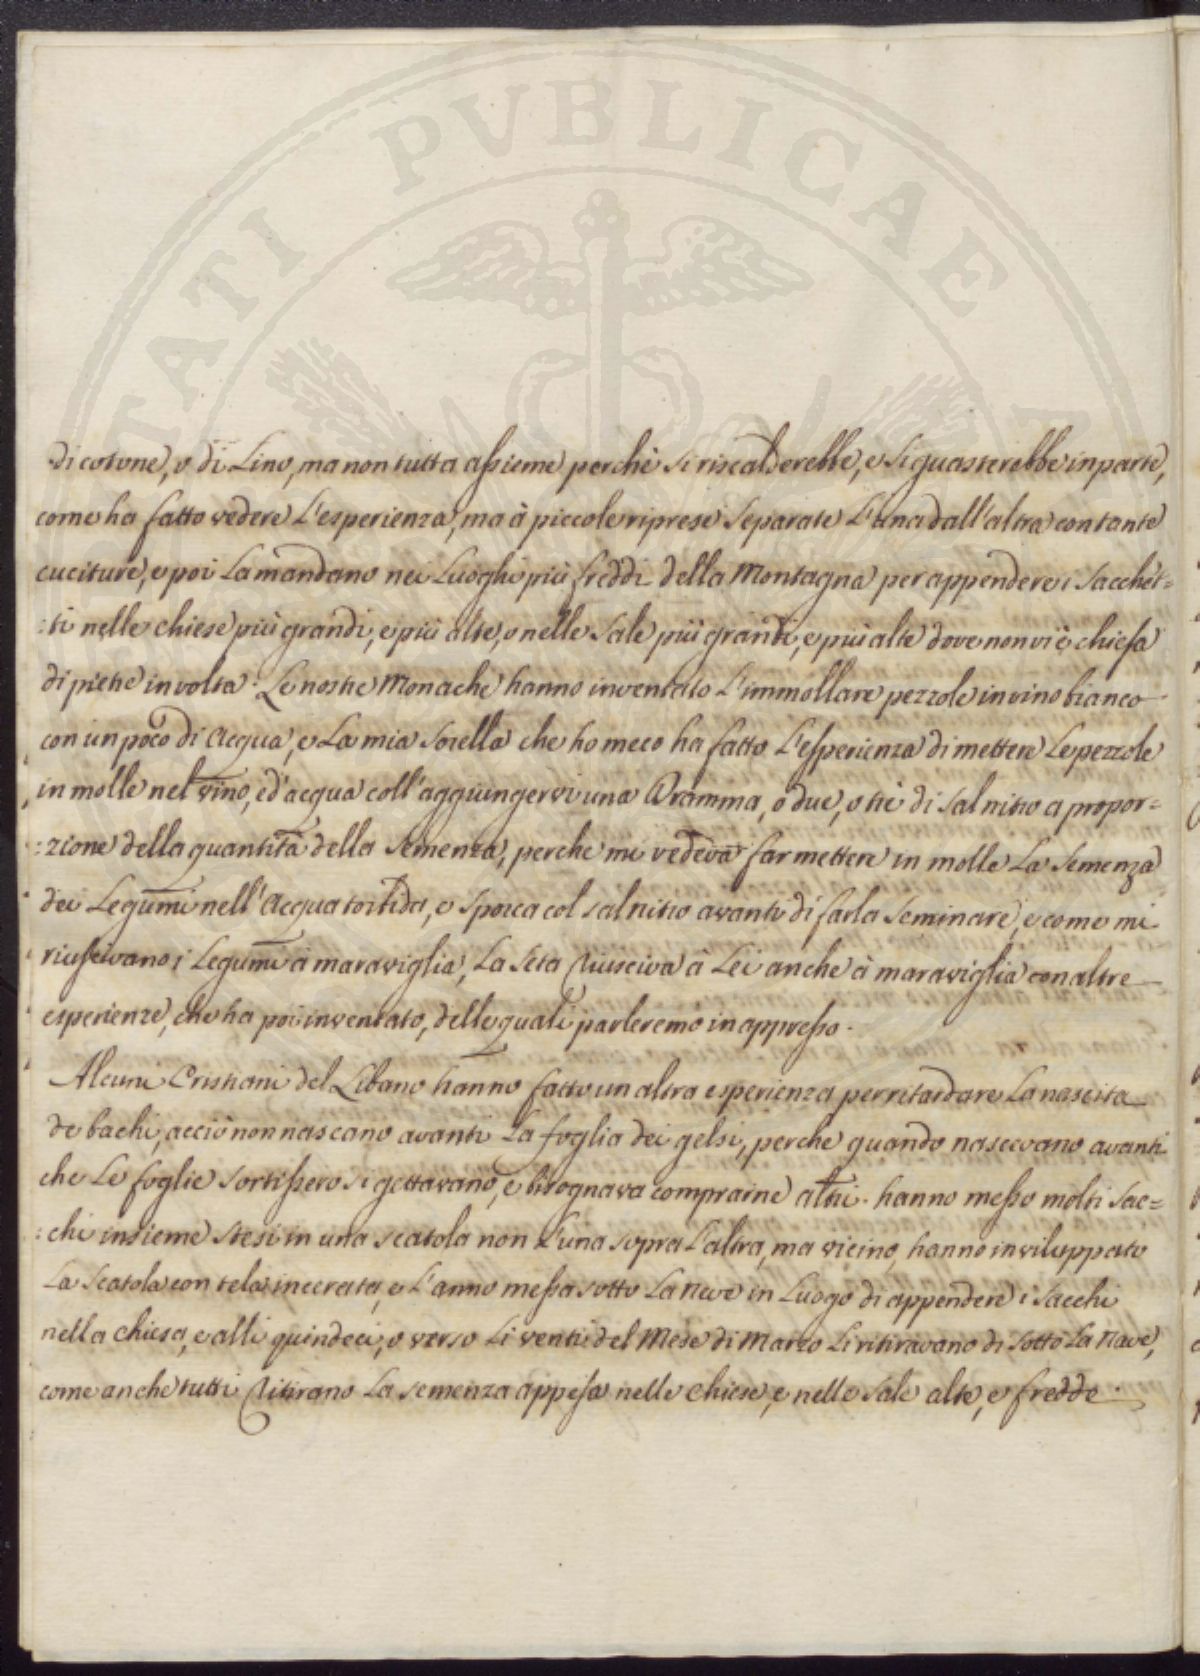 TATI PVBLICAE
di cotone, o di Lino, ma non tutta assieme perchè si riscalderebbe, e si guasterebbe in parte,
come ha fatto vedere L'esperienza, ma à piccole riprese separate L'una dall'altra con tante
cuciture, e poi La mandano nei Luoghi più freddi della Montagna per appendere i sacchet=
:ti nelle chiese più grandi, e più alte, o nelle sale più grandi, e più alte dove non vi è chiesa
di pietre in volta. Le nostre Monache hanno inventato L'immollare pezzole in vino bianco
con un poco di Acqua, e La mia sorella che ho meco ha fatto L'esperienza di mettere Le pezzole
in molle nel vino, ed'acqua coll'aggiungervi una Dramma, o due, o trè di sal nitro a propor=
:zione della quantità della semenza, perche mi vedeva far mettere in molle La semenza
dei Legumi nell'Acqua torbida, e sporca col salnitro avanti di farla seminare, e come mi
riuscivano i Legumi à maraviglia, La seta Riusciva à Lei anche à maraviglia con altre
esperienze, che ha poi inventato, delle quali parleremo in appresso.
Alcuni Cristiani del Libano hanno fatto un altra esperienza per ritardare La nascita
de bachi, acciò non nascano avanti La foglia dei gelsi, perche quando nascevano avanti
che Le foglie sortissero si gettavano, e bisognava comprarne altri. hanno messo molti sac=
:chi insieme stesi in una scatola non L'una sopra L'altra, ma vicino, hanno inviluppato
La scatola con tela incerata, e L'anno messa sotto La neve in Luogo di appendere i sacchi
nella chiesa, e alli quindeci, o verso Li venti del Mese di Marzo Li ritiravano di sotto La Nave,
come anche tutti Ritirano La semenza appesa nelle chiese, e nelle sale alte, e fredde.